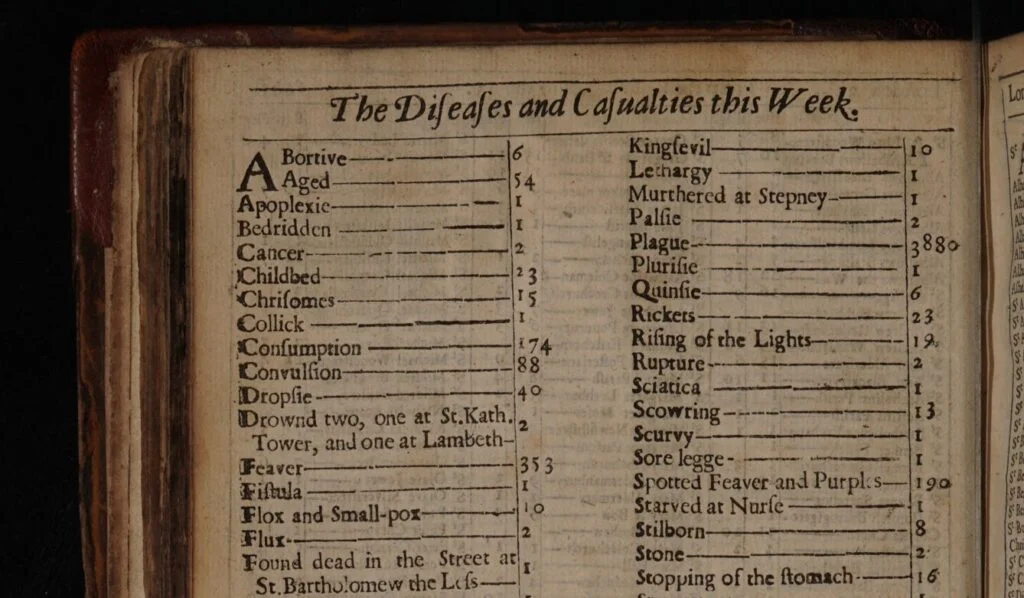 The Diſeaſes and Caſualties this Week.
ABortive 6
Aged 54
Apoplexie 1
Bedridden 1
Cancer 2
Childbed 23
Chriſomes 15
Collick 1
Conſumption 174
Convulſion 88
Dropſie 40
Drownd two, one at St. Kath.
Tower, and one at Lambeth 2
Feaver 353
Fiſtula 1
Flox and Small-pox 10
Flux 2
Found dead in the Street at
St. Bartholomew the Leſs 1
Kingſevil 10
Lethargy 1
Murthered at Stepney 1
Palſie 2
Plague 3880
Pluriſie 1
Quinſie 6
Rickets 23
Riſing of the Lights 19
Rupture 2
Sciatica 1
Scowring 13
Scurvy 1
Sore legge 1
Spotted Feaver and Purples 190
Starved at Nurſe 1
Stilborn 8
Stone 2
Stopping of the ſtomach 16
Lon